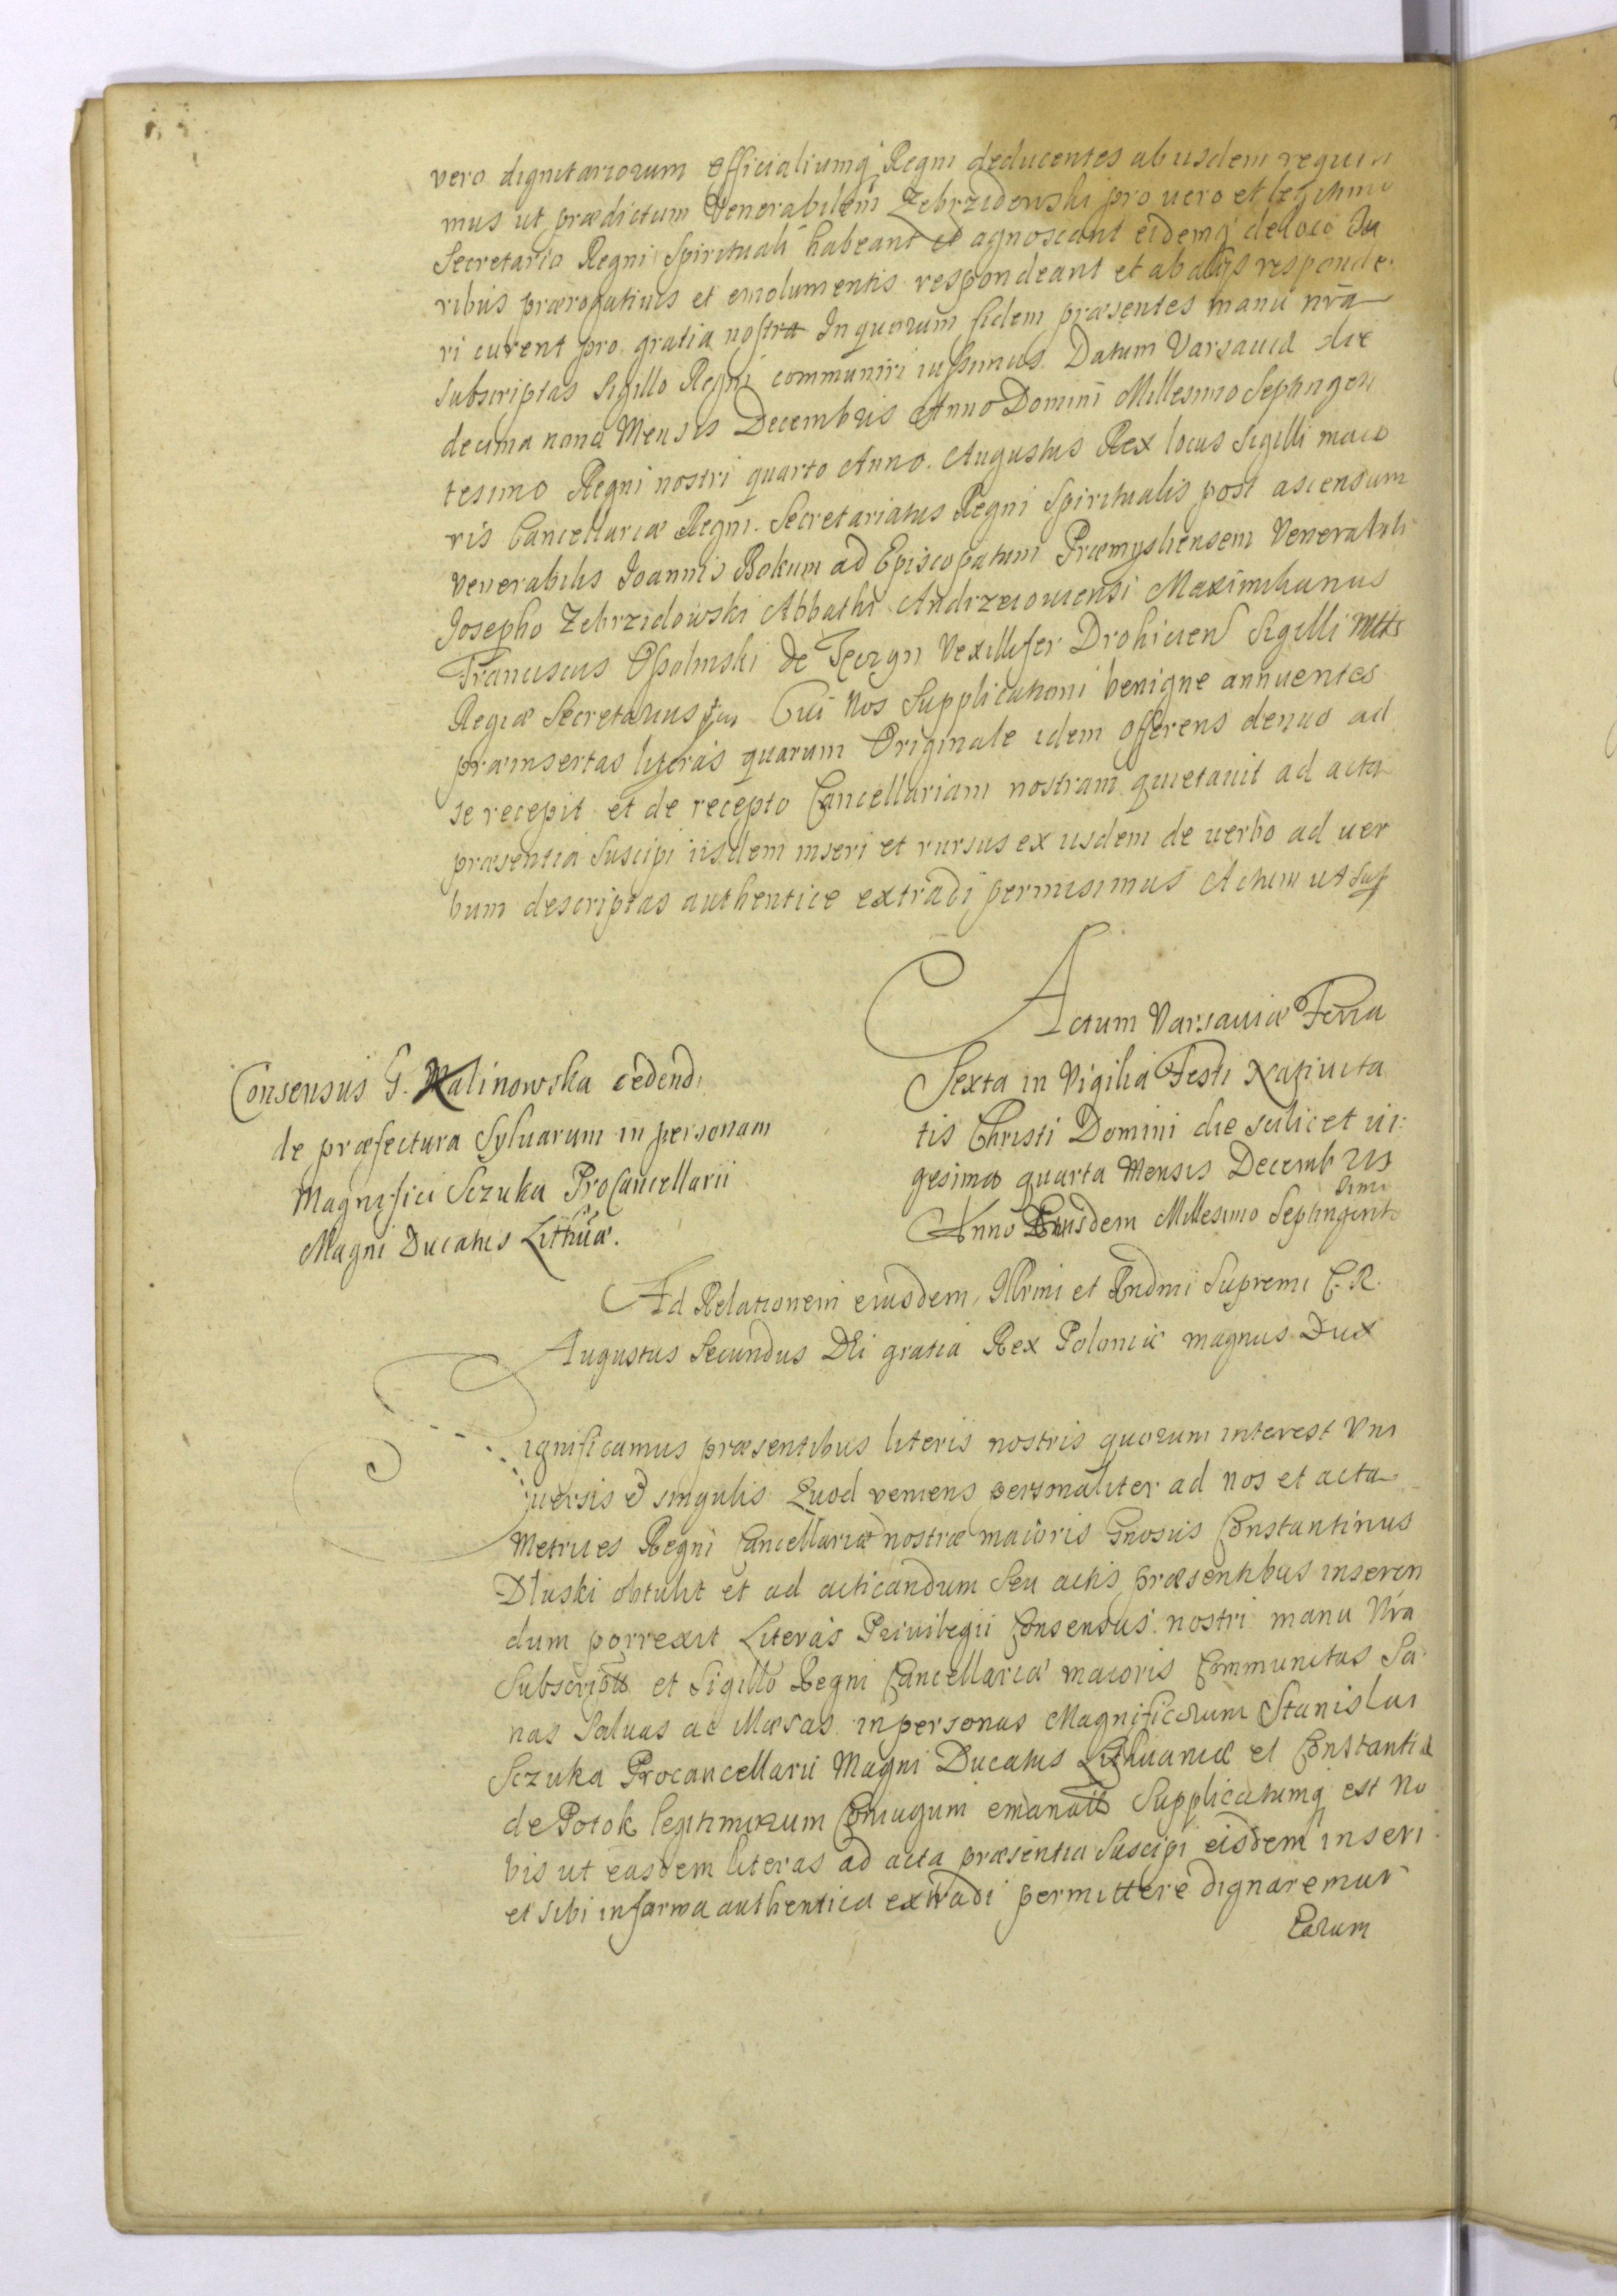 vero dignitariorum Officialiumq Regni deducentes ab iisdem requiri
mus ut prædictum Venerabilem Zebrzidowski pro uero et legitimo
Secretario Regni Spirituali habeant et agnoscant eidemq de loco Iu
ribus prærogatiuis et emolumentis respondeant et ab alijs responde
ri curent pro gratia nostra In quorum fidem præsentes manu nrã
subscriptas Sigillo Regni communiri iussimus. Datum Varsauiæ die
decima nona Mensis Decembris Anno Domini Millesimo Septingen
tesimo Regni nostri quarto Anno. Augustus Rex locus Sigilli maio
ris Cancellariæ Regni. Secretariatus Regni Spiritualis post ascensum
Venerabilis Joannis Bokum ad Episcopatum Præmysliensem Venerabili
Josepho Zebrzidowski Abbathi Andrzeiouiensi Maximilianus
Franciscus Ossolinski de Teczyn Vexillifer Drohicien Sigilli Mttis
Regiæ Secretarius Cui Nos Supplicationi benigne annuentes
præinsertas literas quarum Originale idem offerens denuo ad
se recepit et de recepto Cancellariam nostram quietauit ad acta
præsentia Suscipi iisdem inseri et rursus ex iisdem de uerbo ad uer
bum descriptas authentice extradi permisimus Actum ut Sup
Actum Varsauiæ Feria
Sexta in Vigilia Festi Natiuita
tis Christi Domini die scilicet ui:
gesima quarta Mensis Decembris
Anno Eiusdem Millesimo Septingente
simo
Consensus G. Malinowska cedendi
de præfectura Syluarum in personam
Magnifici Sczuka ProCancellarii
Magni Ducatus Lithuæ.
Ad Relationem eiusdem Illrmi et Rndmi Supremi C. R.
Augustus Secundus Dei gratia Rex Poloniæ magnus Dux
Significamus præsentibus literis nostris quorum interest Vni
uersis & singulis Quod veniens personaliter ad nos et acta
Metrices Regni Cancellariæ nostræ maioris Gnosus Constantinus
Dłuski obtulit et ad acticandum Seu actis præsentibus inseren
dum porrexit Literas Priuilegii Consensus nostri manu Nra
Subscriptas et Sigillo Regni Cancellariæ maioris Communitas Sa
nas Saluas ac Illæsas in personas Magnificorum Stanislai
Sczuka Procancellarii Magni Ducatus Lithuaniæ et Constantiæ
de Potok legitimorum Coniugum emanatas Supplicatumq est No
bis ut easdem literas ad acta præsentia Suscipi eisdem inseri
et sibi in forma authentica extradi permittere dignaremur
Earum